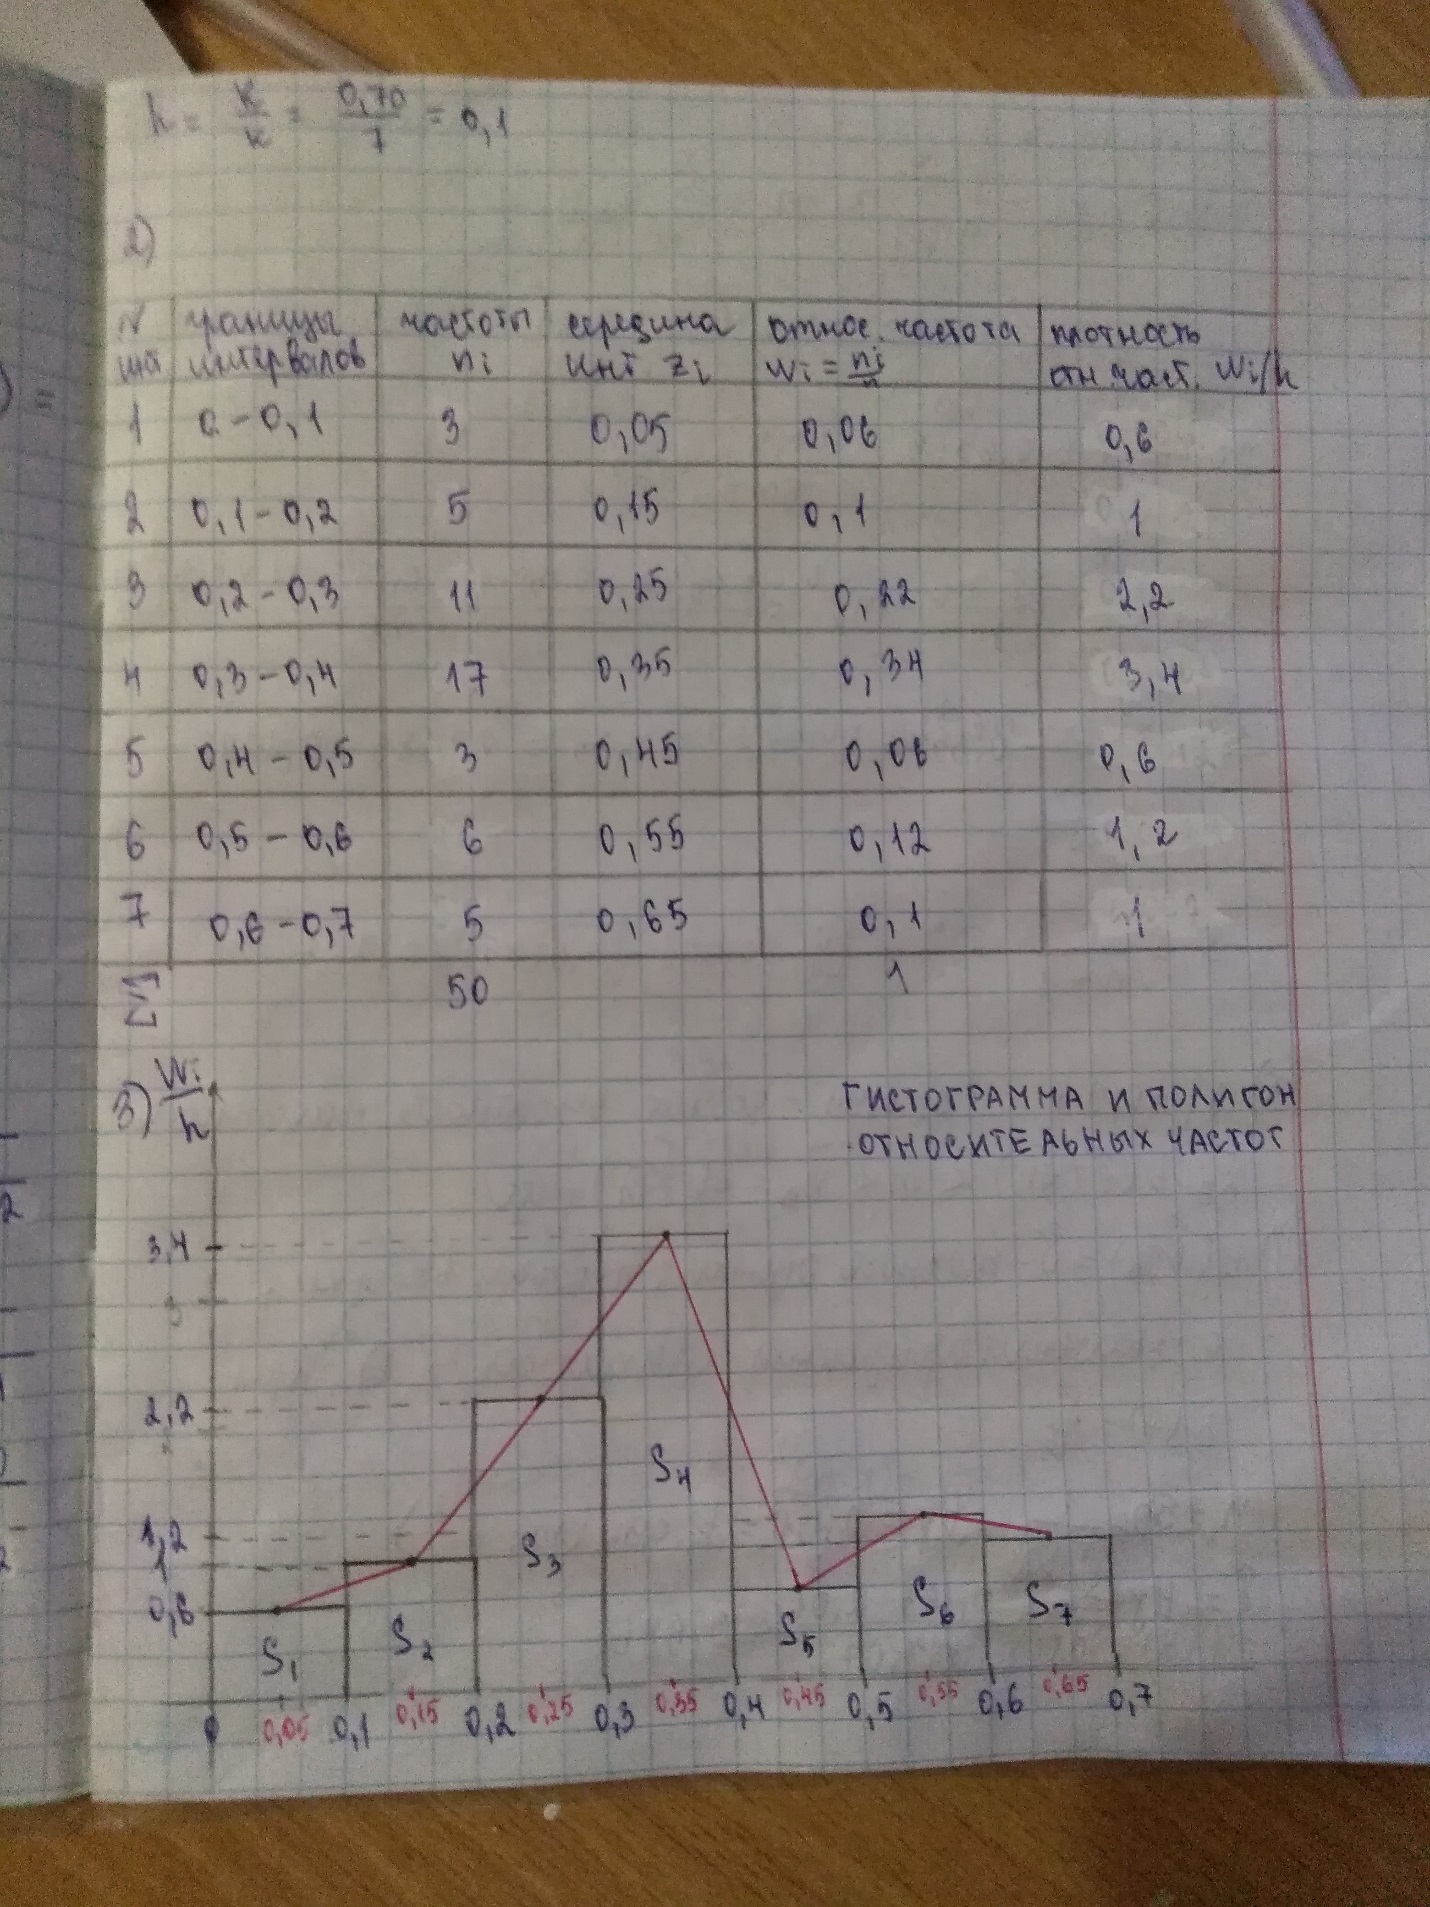 h = R/K = 0,70/7 = 0,1
2)
N инт | границы интервалов | частоты ni | середина инт zi | относ. частота wi = ni/n | плотность отн. част. Wi/h
1 | 0 - 0,1 | 3 | 0,05 | 0,06 | 0,6
2 | 0,1 - 0,2 | 5 | 0,15 | 0,1 | 1
3 | 0,2 - 0,3 | 11 | 0,25 | 0,22 | 2,2
4 | 0,3 - 0,4 | 17 | 0,35 | 0,34 | 3,4
5 | 0,4 - 0,5 | 3 | 0,45 | 0,06 | 0,6
6 | 0,5 - 0,6 | 6 | 0,55 | 0,12 | 1,2
7 | 0,6 - 0,7 | 5 | 0,65 | 0,1 | 1
Σ 50 1
3) Wi/h
ГИСТОГРАММА И ПОЛИГОН
ОТНОСИТЕЛЬНЫХ ЧАСТОТ
3,4
3
2,2
1,2
1
0,6
S1 S2 S3 S4 S5 S6 S7
0 0,05 0,1 0,15 0,2 0,25 0,3 0,35 0,4 0,45 0,5 0,55 0,6 0,65 0,7